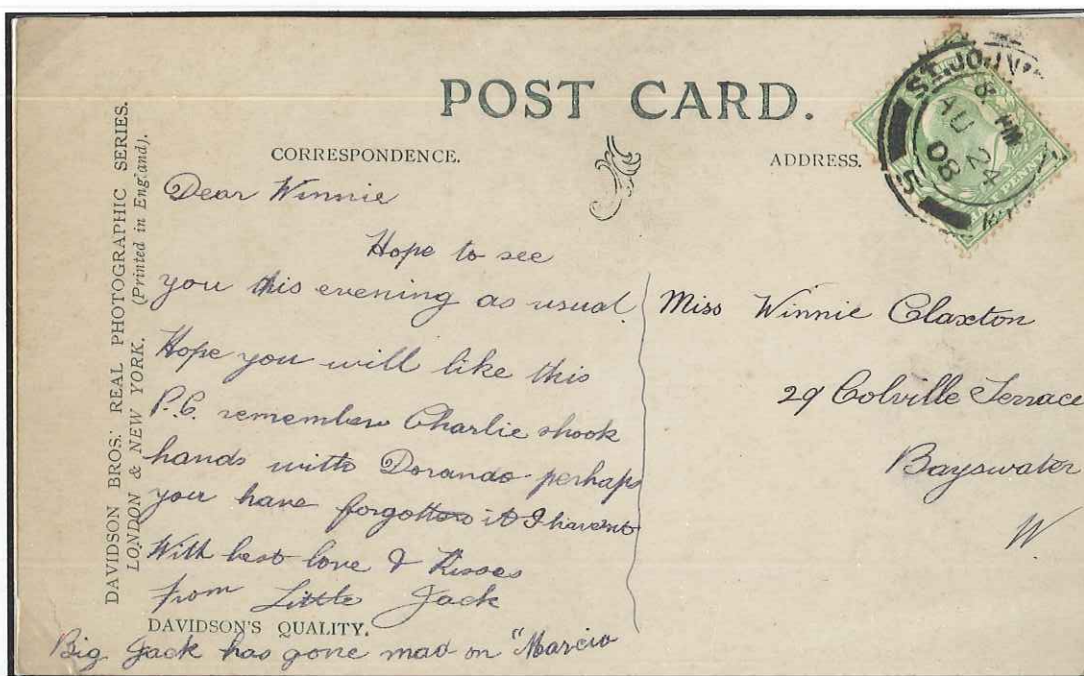 POST CARD.
DAVIDSON BROS: REAL PHOTOGRAPHIC SERIES.
LONDON & NEW YORK. (Printed in England).
CORRESPONDENCE.
Dear Winnie
Hope to see
you this evening as usual.
Hope you will like this
P.C. remember Charlie shook
hands with Dorando perhaps
you have forgotten it I havent
With best love & Kisses
from Little Jack
DAVIDSON'S QUALITY.
Big Jack has gone mad on "
ADDRESS.
Miss Winnie Claxton
29 Colville Terrace
Bayswater
W.
ST. JO
8. PM
AU 24
08
5
PENNY